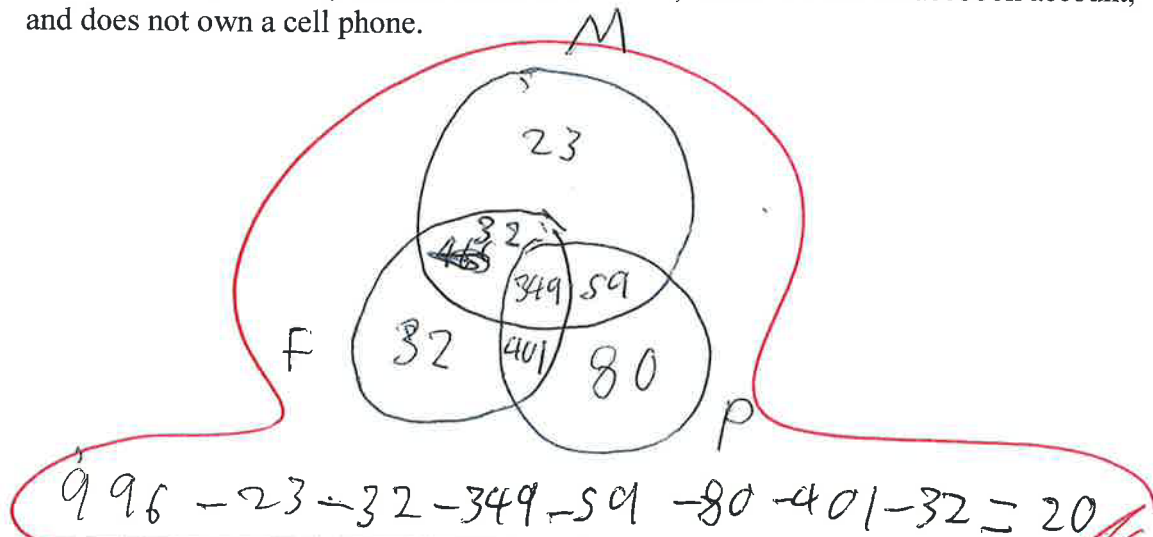 and does not own a cell phone.
M
23
32
349 59
F 32 401 80
P
996 - 23 - 32 - 349 - 59 - 80 - 401 - 32 = 20